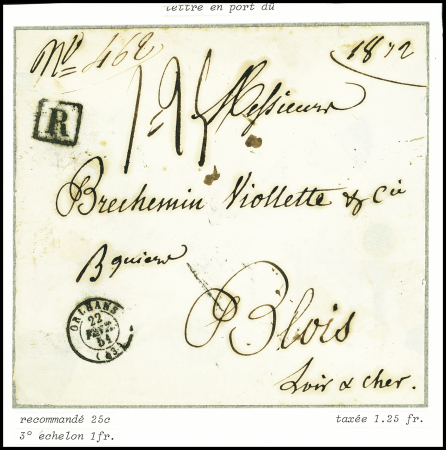 lettre en port dû
Nº 462
1872
R
1-25
Messieurs
Brechemin Viollette & Cie
Bquiers
Blois
Loir & Cher.
ORLÉANS
22
FEVR.
51
(43)
recommandé 25c
taxée 1.25 fr.
3° échelon 1fr.